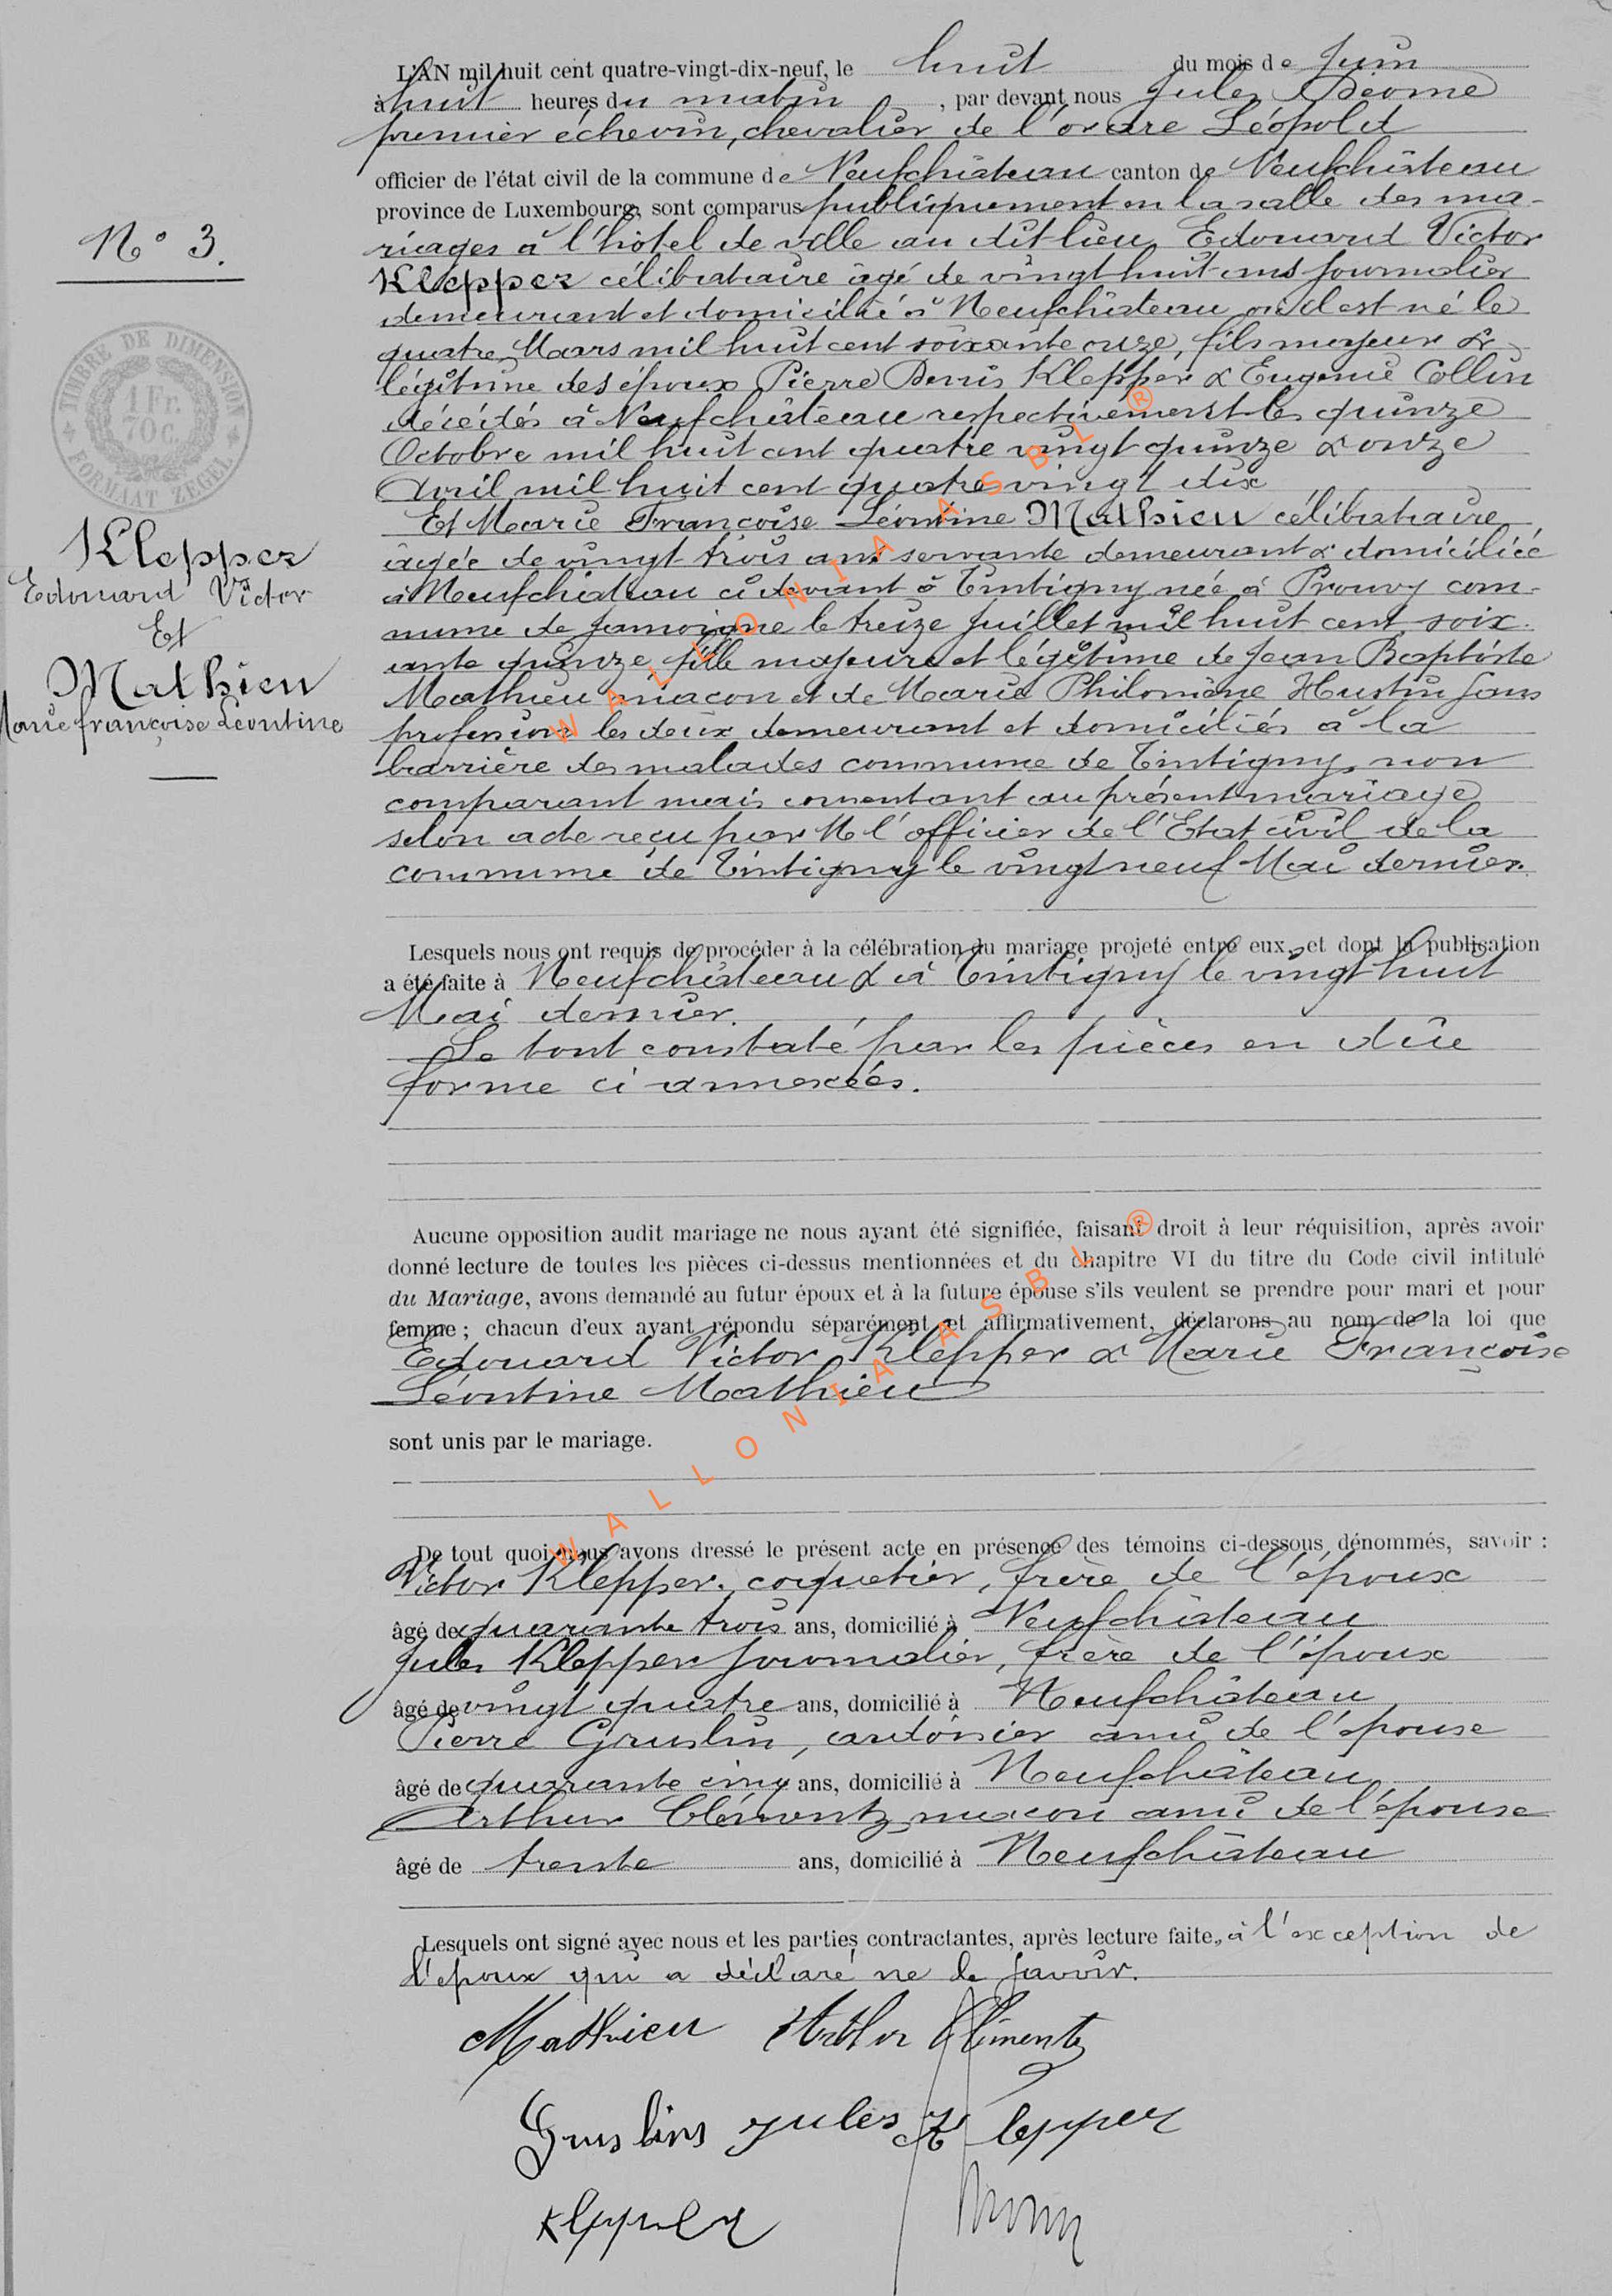 L'AN mil huit cent quatre-vingt-dix-neuf, le huit du mois de Juin
à huit heures du matin, par devant nous Jules
premier échevin, chevalier de l'ordre Léopold
officier de l'état civil de la commune de Neufchâteau canton de Neufchâteau
province de Luxembourg, sont comparus publiquement en la salle des ma-
N° 3.
riages à l'hôtel de ville au dit lieu Edouard Victor
Klepper célibataire âgé de vingt huit ans journalier
demeurant et domicilié à Neufchâteau où il est né le
quatre Mars mil huit cent soixante onze, fils majeur &
légitime des époux Pierre Denis Klepper & Eugenie Collin
décédés à Neufchâteau respectivement les quinze
Octobre mil huit cent quatre vingt quinze & onze
Avril mil huit cent quatre vingt dix
TIMBRE DE DIMENSION
1 Fr.
70 c.
FORMAAT ZEGEL
Klepper
Edouard Victor
Et
Mathieu
Marie françoise Léontine
Et Marie Françoise Léontine Mathieu célibataire
âgée de vingt trois ans servante demeurant & domiciliée
à Neufchâteau ci devant à Tintigny née à Prouvy com-
mune de Jamoigne le treize Juillet mil huit cent soix-
ante quinze fille majeure et légitime de Jean Baptiste
Mathieu maçon et de Marie Philomène Hustin sans
profession les deux demeurant et domiciliés à la
barrière des malades commune de Tintigny, non
comparant mais consentant au présent mariage
selon acte reçu par M l'officier de l'Etat civil de la
commune de Tintigny le vingt neuf Mai dernier.
Lesquels nous ont requis de procéder à la célébration du mariage projeté entre eux, et dont la publication
a été faite à Neufchâteau & à Tintigny le vingt huit
Mai dernier.
Le tout constaté par les pièces en dûe
forme ci annexées.
Aucune opposition audit mariage ne nous ayant été signifiée, faisant droit à leur réquisition, après avoir
donné lecture de toutes les pièces ci-dessus mentionnées et du chapitre VI du titre du Code civil intitulé
du Mariage, avons demandé au futur époux et à la future épouse s'ils veulent se prendre pour mari et pour
femme ; chacun d'eux ayant répondu séparément et affirmativement, déclarons au nom de la loi que
Edouard Victor Klepper & Marie Françoise
Léontine Mathieu
sont unis par le mariage.
De tout quoi nous avons dressé le présent acte en présence des témoins ci-dessous dénommés, savoir :
Victor Klepper, coquetier, frère de l'époux
âgé de quarante trois ans, domicilié à Neufchâteau
Jules Klepper journalier, frère de l'époux
âgé de vingt quatre ans, domicilié à Neufchâteau
Pierre Gruslin, cantonier ami de l'épouse
âgé de quarante cinq ans, domicilié à Neufchâteau
Arthur Clémentz maçon ami de l'épouse
âgé de trente ans, domicilié à Neufchâteau
Lesquels ont signé avec nous et les parties contractantes, après lecture faite, à l'exception de
l'époux qui a déclaré ne le savoir.
Mathieu Clementz
Gruslins Jules Klepper
Klepper
WALLONIA ASBL ®
WALLONIA ASBL ®